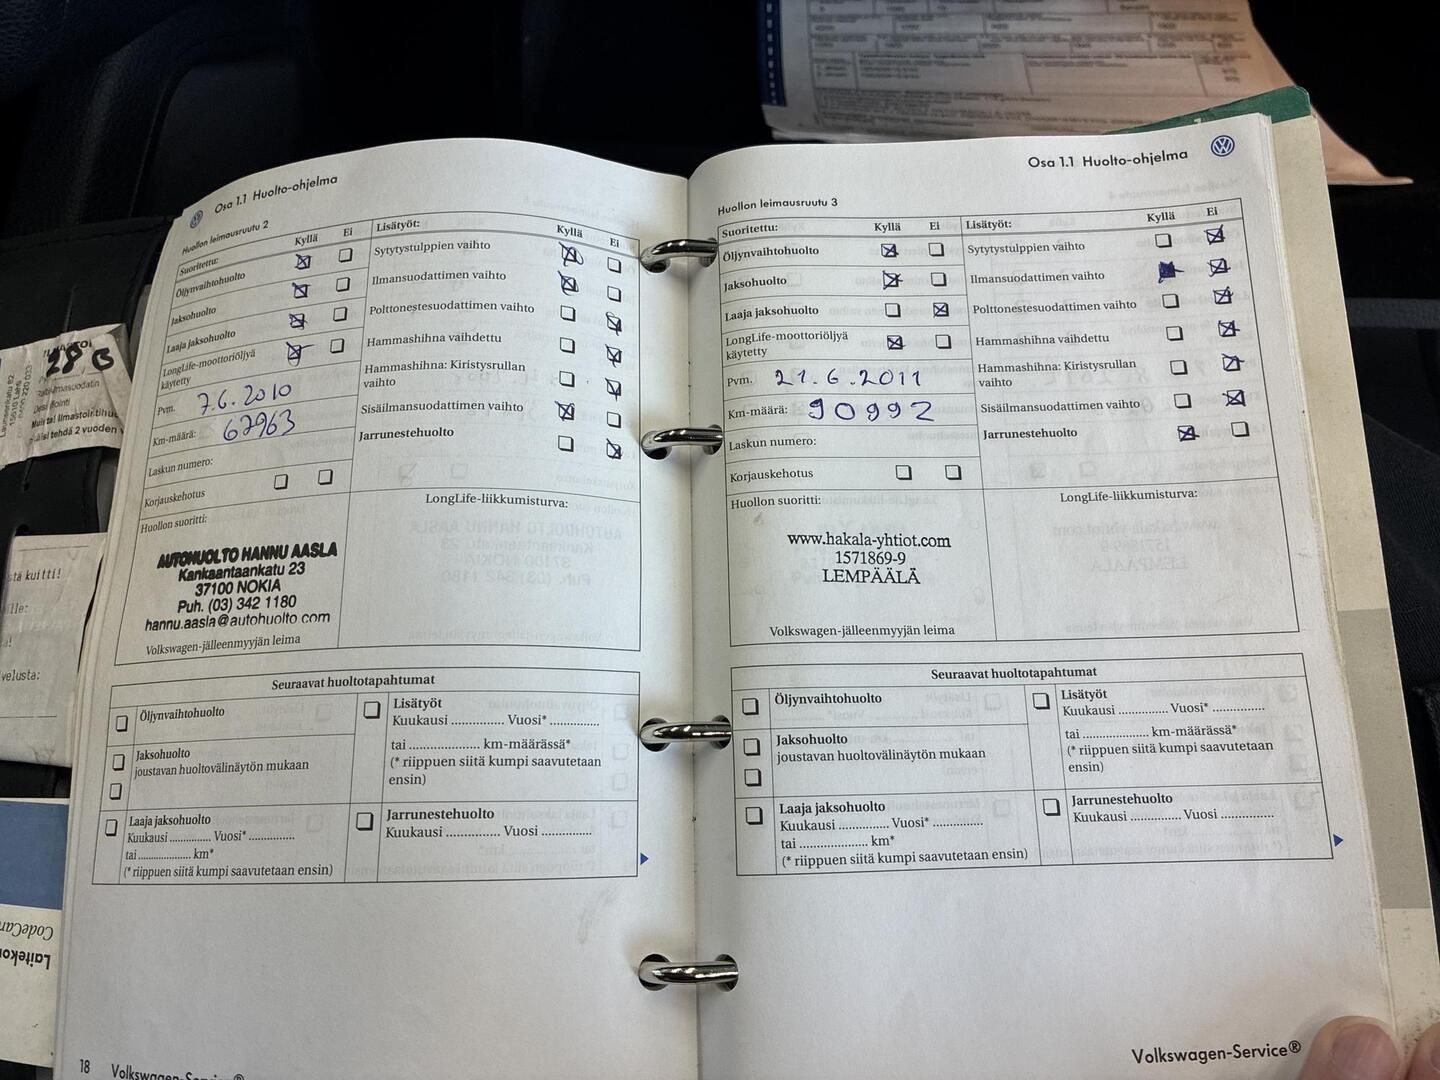 Osa 1.1 Huolto-ohjelma
Huollon leimausruutu 2
Suoritettu:
Kyllä Ei
Öljynvaihtohuolto
Jaksohuolto
Laaja jaksohuolto
LongLife-moottoriöljyä
käytetty
Pvm. 7.6.2010
Km-määrä: 67963
Laskun numero:
Korjauskehotus
Lisätyöt:
Kyllä Ei
Sytytystulppien vaihto
Ilmansuodattimen vaihto
Polttonestesuodattimen vaihto
Hammashihna vaihdettu
Hammashihna: Kiristysrullan
vaihto
Sisäilmansuodattimen vaihto
Jarrunestehuolto
Huollon suoritti:
LongLife-liikkumisturva:
AUTOHUOLTO HANNU AASLA
Kankaantaankatu 23
37100 NOKIA
Puh. (03) 342 1180
hannu.aasla@autohuolto.com
Volkswagen-jälleenmyyjän leima
Seuraavat huoltotapahtumat
Öljynvaihtohuolto
Jaksohuolto
joustavan huoltovälinäytön mukaan
Laaja jaksohuolto
Kuukausi .............. Vuosi* ...............
tai .................... km*
(* riippuen siitä kumpi saavutetaan ensin)
Lisätyöt
Kuukausi .............. Vuosi* ..............
tai .................... km-määrässä*
(* riippuen siitä kumpi saavutetaan
ensin)
Jarrunestehuolto
Kuukausi .............. Vuosi ..............
18 Volkswagen-Service®
Osa 1.1 Huolto-ohjelma
Huollon leimausruutu 3
Suoritettu:
Kyllä Ei
Öljynvaihtohuolto
Jaksohuolto
Laaja jaksohuolto
LongLife-moottoriöljyä
käytetty
Pvm. 21.6.2011
Km-määrä: 90992
Laskun numero:
Korjauskehotus
Lisätyöt:
Kyllä Ei
Sytytystulppien vaihto
Ilmansuodattimen vaihto
Polttonestesuodattimen vaihto
Hammashihna vaihdettu
Hammashihna: Kiristysrullan
vaihto
Sisäilmansuodattimen vaihto
Jarrunestehuolto
Huollon suoritti:
LongLife-liikkumisturva:
www.hakala-yhtiot.com
1571869-9
LEMPÄÄLÄ
Volkswagen-jälleenmyyjän leima
Seuraavat huoltotapahtumat
Öljynvaihtohuolto
Jaksohuolto
joustavan huoltovälinäytön mukaan
Laaja jaksohuolto
Kuukausi .............. Vuosi* ..............
tai .................... km*
(* riippuen siitä kumpi saavutetaan ensin)
Lisätyöt
Kuukausi .............. Vuosi* ..............
tai .................... km-määrässä*
(* riippuen siitä kumpi saavutetaan
ensin)
Jarrunestehuolto
Kuukausi .............. Vuosi ..............
Volkswagen-Service®